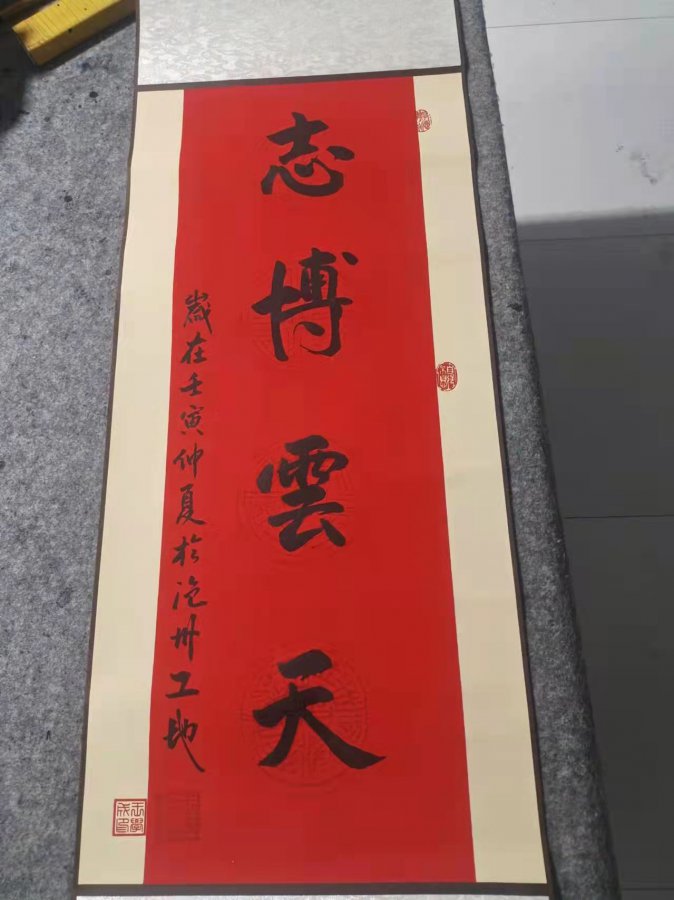 志博雲天
歲在壬寅仲夏於滄州工地